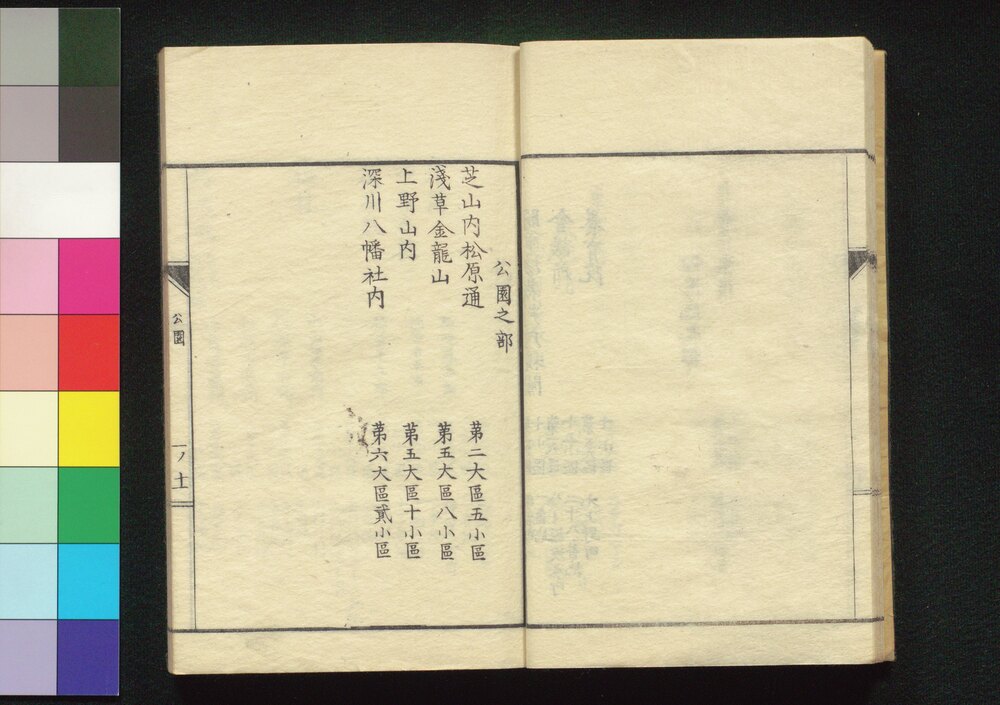 公園之部
芝山内松原通 第二大區五小區
淺草金龍山 第五大區八小區
上野山内 第五大區十小區
深川八幡社内 第六大區貳小區
公園 一ノ十一